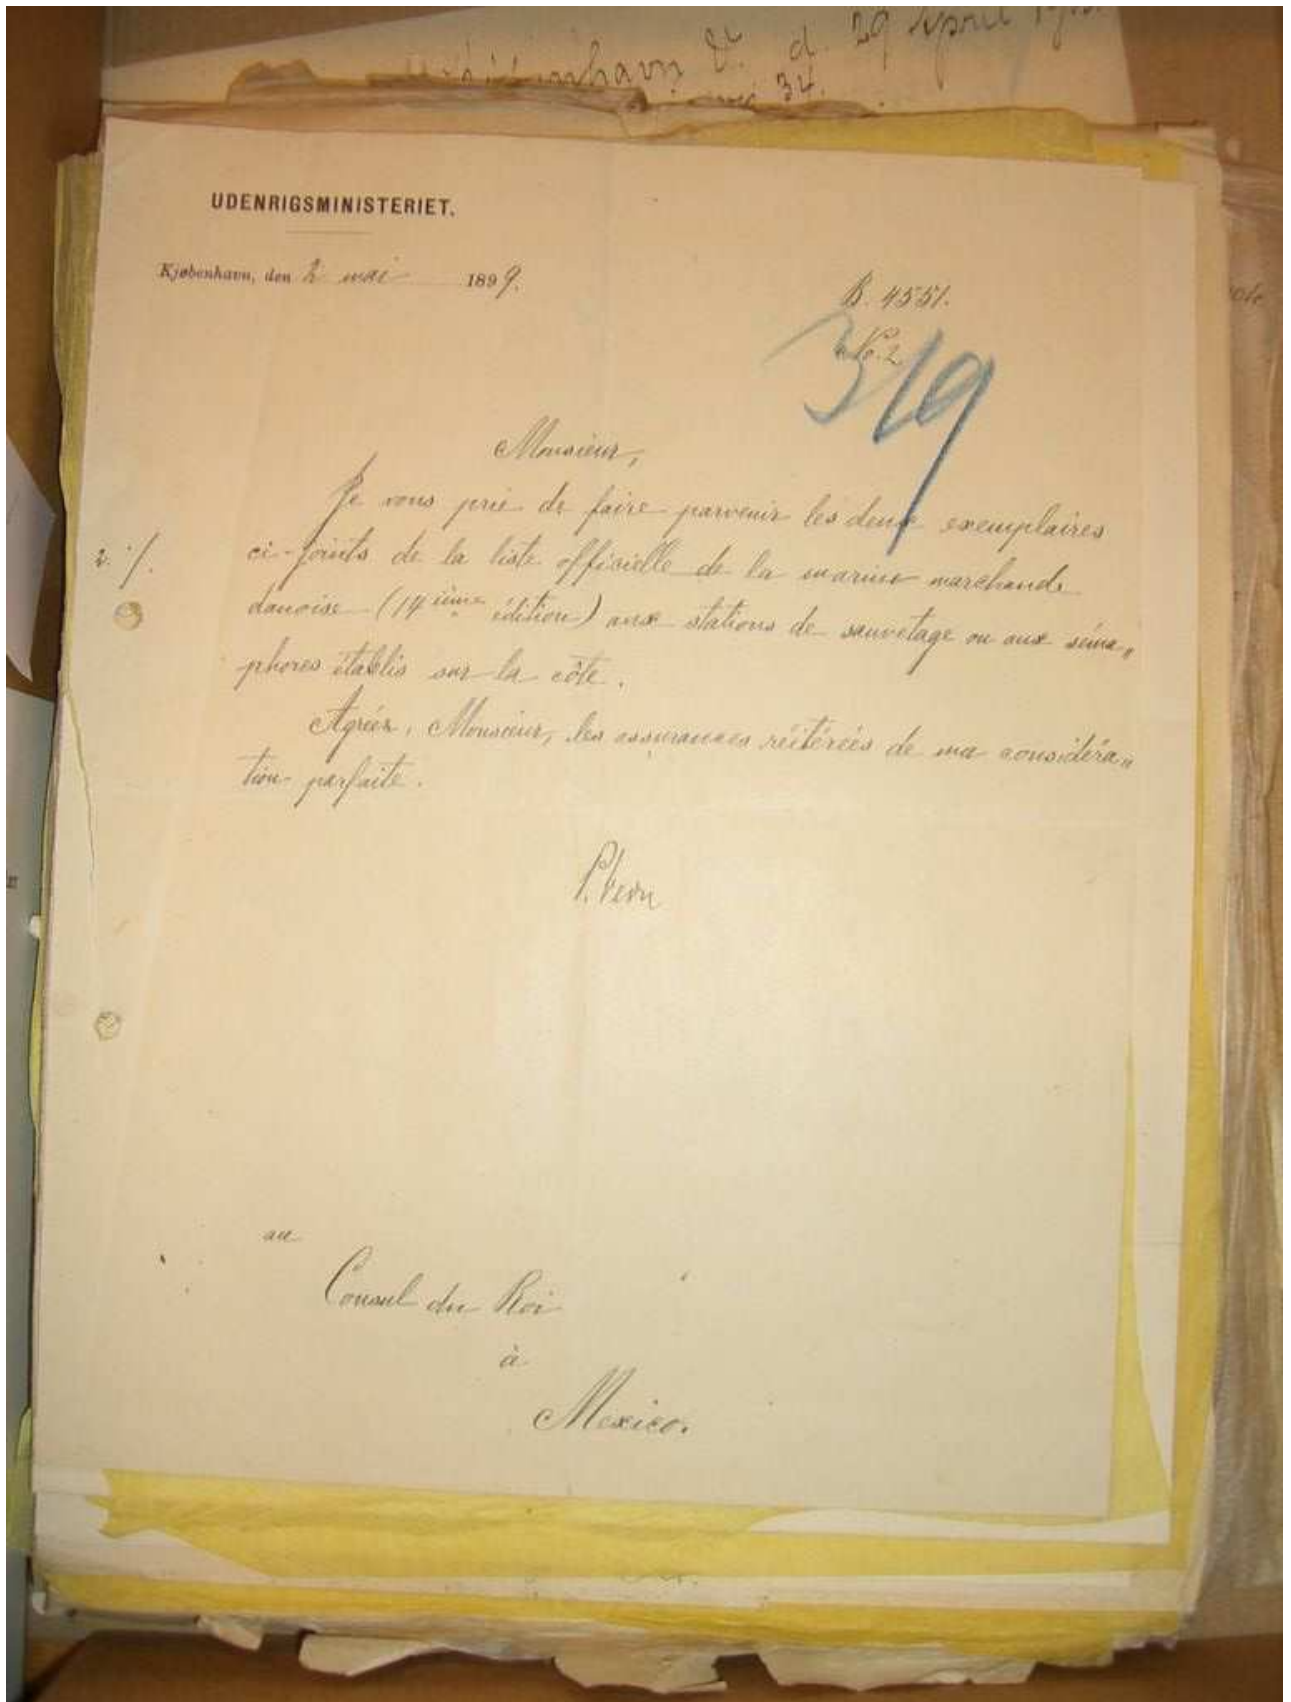 Kjøbenhavn V. d. 29 April
34.
UDENRIGSMINISTERIET.
Kjøbenhavn, den 2 mai 1899.
B. 4551.
No. 2
319
Monsieur,
Je vous prie de faire parvenir les deux exemplaires
2 ·/.
ci-joints de la liste officielle de la marine marchande
danoise (14ième édition) aux stations de sauvetage ou aux séma„
phores établis sur la côte.
Agréez, Monsieur, les assurances réitérées de ma considéra„
tion parfaite.
au
Consul du Roi
à
Mexico.